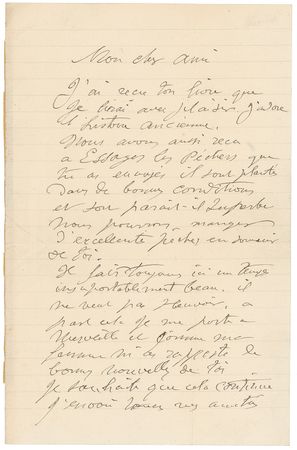 Mon cher ami
J'ai recu ton livre que
je lirai avec plaisir j'adore
l'histoire ancienne.
Nous avons aussi recu
a Essoyes les Pêchers que
tu as envoyés il sont plantés
dans de bonnes conditions
et sont parait-il superbe
nous pourrons manger
d'excellente pêches en souvenir
de toi.
Je fais toujours ici un temps
insuportablement beau. il
ne veut pas pleuvoir, a
part cela je me porte a
merveille et comme ma
femme m'as rapporté de
bonnes nouvelles de toi.
Je souhaite que cela continue
j'envoie tous mes amitiés